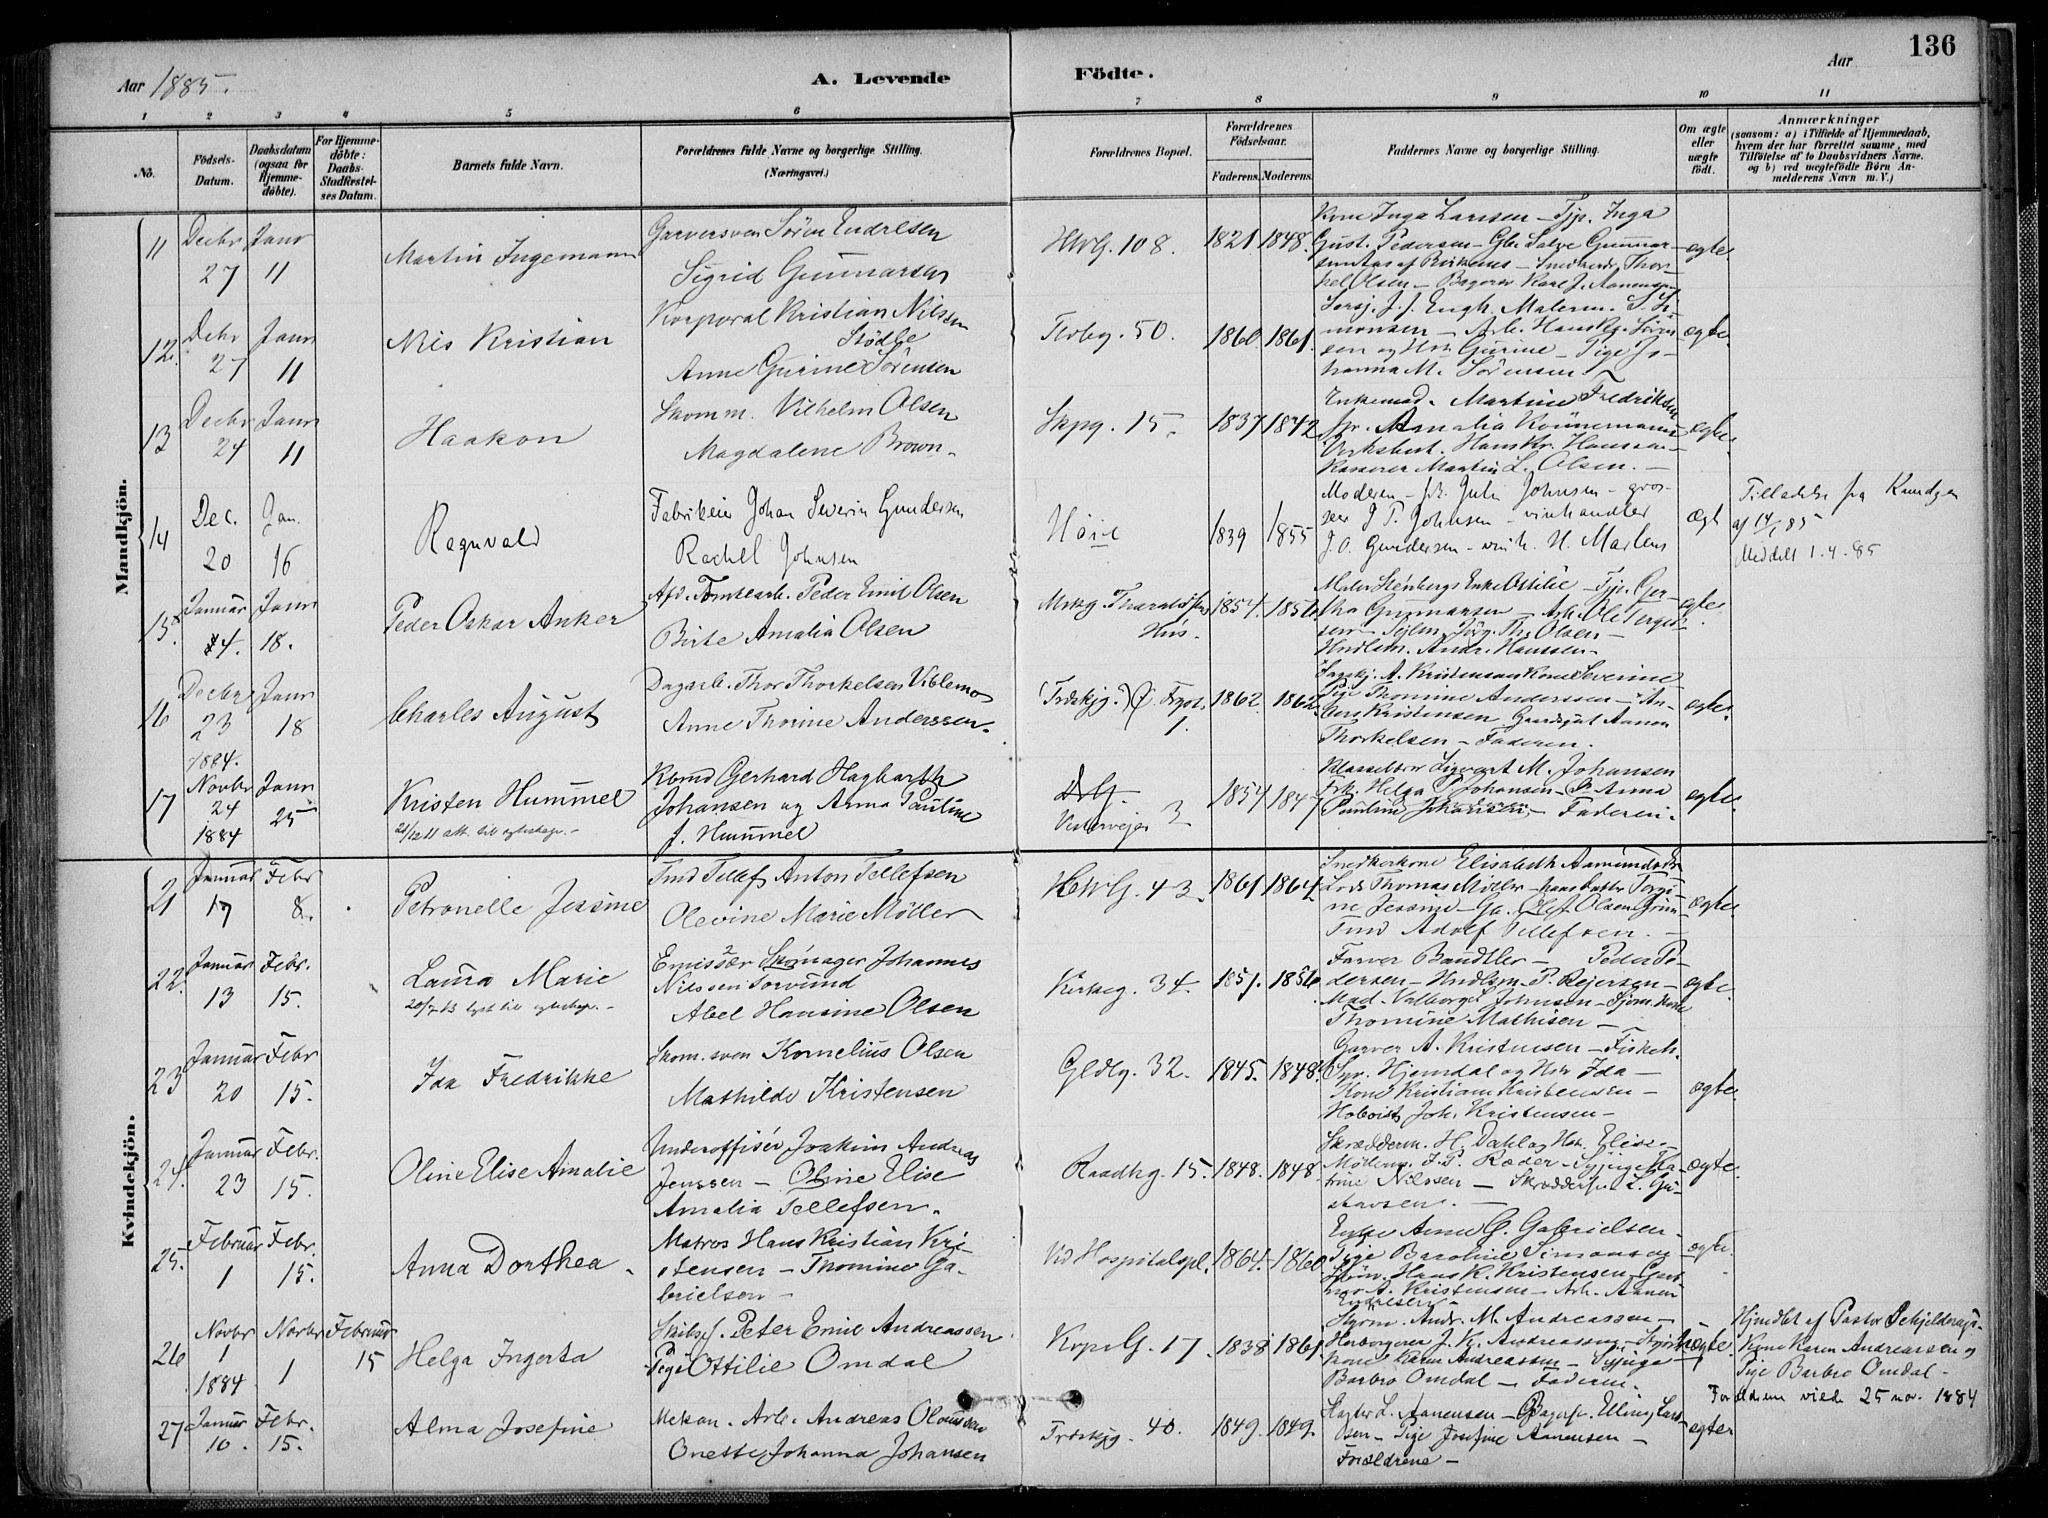 136
Aar 1885.
A. Levende Födte.
Aar
1 2 3 4 5 6 7 8 9 10 11
No.
Födsels-Datum.
Daabsdatum (ogsaa for Hjemme-döbte).
For Hjemme-döbte: Daabs-Stadfæstel-ses Datum.
Barnets fulde Navn.
Forældrenes fulde Navne og borgerlige Stilling.
(Næringsvei.)
Forældrenes Bopæl.
Forældrenes Födselsaar.
Faderens. Moderens.
Faddernes Navne og borgerlige Stilling.
Om ægte eller uægte födt.
Anmærkninger
(saasom: a) i Tilfælde af Hjemmedaab, hvem der har forrettet samme, med Tilföielse af to Daabsvidners Navne. og b) ved uægtefödte Börn Anmelderens Navn m. V.)
Mandkjön.
11 Decbr 27 Janr 11
Martin Ingemann
Garversven Sören Endresen
Sigrid Gunnarsen
108. 1821 1848.
Kone Inga Larssen - Tjp. Inga
Gust. Pedersen - Gbr. Salve Gunnar-
Olsen - Bagersv. Karl J. Aanensen
ægte
12. Debr 27 Janr 11
Nils Kristian
Korporal Kristian Nilsen
Stödle
Anne Gurine Sörensen
50. 1860 1861.
J. J. Engh. Malerm. S. Si-
monsen - Arb. Hans Kr. Sören-
sen og Hst. Gurine - Pige Jo-
hanna M. Sörensen
ægte
13 Decbr 24 Janr 11
Haakon
Skomm. Vilhelm Olsen
Magdalene Brown.
Skpg. 15. 1837 1842
Enkemad. Martine Fredriksen
Jfr. Amalia Könnemann
Verksbest. Hans Kr. Hanssen
Kasserer Martin L. Olsen.
ægte.
14 Dec. 20 Jan. 16
Ragnvald
Fabrikeier Johan Severin Gundersen
Rachel Johnsen
Höie 1839 1855
Moderen - frk. Julie Johnsen - gros-
serer J. T. Johnsen - vinhandler
J. O. Gundersen - vinh. H. Martens
ægt
Tilladelse fra Kundgen
af 14/1 85
Meddelt 1.4.85
15. Januar 4. Janr 18.
Peder Oskar Anker
Afd. Tomtearb. Peder Emil Olsen
Birte Amalia Olsen
Mrkg. Hus. 1854. 1856
Maler Stenbergs Enke Ottilie - Tjp. Ger-
tha Gunnarsen - Arb. Ole Terges-
sen - Sejlm. Jörg. Th. Olsen -
Hndlsm. Andr. Hanssen -
ægte.
16 Decbr 23 1884. Janr 18
Charles August
Dagarb. Thor Thorkelsen Viblemo
Anne Thorine Anderssen.
(Trdskjg.) 1. 1862. 1862.
A. Kristensens Kone Severine
Pige Thomine Anderssen - An-
ders Kristensen Gaardsgut Aanen
Thorkelsen - Faderen.
ægte.
17 Novbr 24 1884 Janr 25
Kristen Hummel
21/12 11 att. till egteskap. -
Kbmd Gerhard Hagbarth
Johansen og Anna Pauline
J. Hummel
Vesterveien 3 1854 1847
Klasselotr Sigvart M. Johansen
Frk. Helga P. Johansen - Anna
Pauline Johansen - Faderen.
ægte.
Kvindekjön.
21 Januar 17 Febr 8.
Petronelle Jessine
Tmd Tellef Anton Tellefsen
Olevine Marie Möller
43. 1861 1864
Snedkerkone Elisabeth Aamundsen
Lods Thomas Möller - hans Datter Torgi-
ne Jessine - Olsen Grim-
Tmd Adolf Tellefsen. -
ægte
22. Januar 13 Febr. 15.
Laura Marie
20/7 13 lyst till egteskap. -
Emissær Skomager Johannes
Nilssen Torvund
Abel Hansine Olsen
Kirkeg. 34. 1851. 1856
Farver Bandtler - Peder Pe-
dersen - Hndlsm. P. Rejersen -
Mad. Valborg Johnsen - Sjöm. Kone
Thomine Mathisen -
ægte.
23 Januar 20 Febr 15.
Ida Fredrikke
Skom. sven Kornelius Olsen
Mathilde Kristensen
Gldlg. 32. 1845. 1848.
Garver A. Kristensen - Fiskeh.
Hjemdal og Hstr Ida -
Kone Kristiane Kristensen -
Joh. Kristensen -
ægte.
24. Januar 23 Febr. 15.
Oline Elise Amalie
Underoffisér Joakim Andreas
Jenssen - Oline Elise
Amalia Tellefsen.
Raadhg. 15. 1848. 1848.
Skrædderm. H. Dahl og Hst. Elise -
J. P. Ræder - Sypige Ka-
trine Nilssen - Skræddersv. L. Gu-
stavsen.
ægte.
25. Februar 1 Febr. 15.
Anna Dorthea.
Matros Hans Kristian Kri-
stensen - Thomine Ga-
brielsen -
Vid Hospitalspl. 1864. 1860
Enke Anne G. Gabrielsen -
Pige Baroline Simonsen
Hans K. Kristensen -
A. Kristensen - Arb. Aanen
Endresen -
ægte
26 Novbr 1 1884 Novbr 1 Februar 15
Helga Ingerta
Skibsf. Peter Emil Andreassen
Pige Ottilie Omdal
KopvG. 17 1838 1861.
Styrm. Andr. M. Andreassen -
Herbergerer J. K. Andreassen -
kone Karen Andreassen - Sypige
Barbro Omdal - Faderen.
uægte.
Hjmdöbt af Pastor Schjelderup.
Kone Karen Andreassen og
Pige Barbro Omdal -
Forældrene viede 25 nov. 1884
27 Januar 10. Febr. 15.
Alma Josefine
Mekan. Arb. Andreas Olaussen
Onette Johanna Johansen
Trdskjg. 40. 1849. 1849.
L. Aanensen - Bagersv. Elling Lars-
sen - Pige Josefine Aanensen -
Forældrene -
ægte